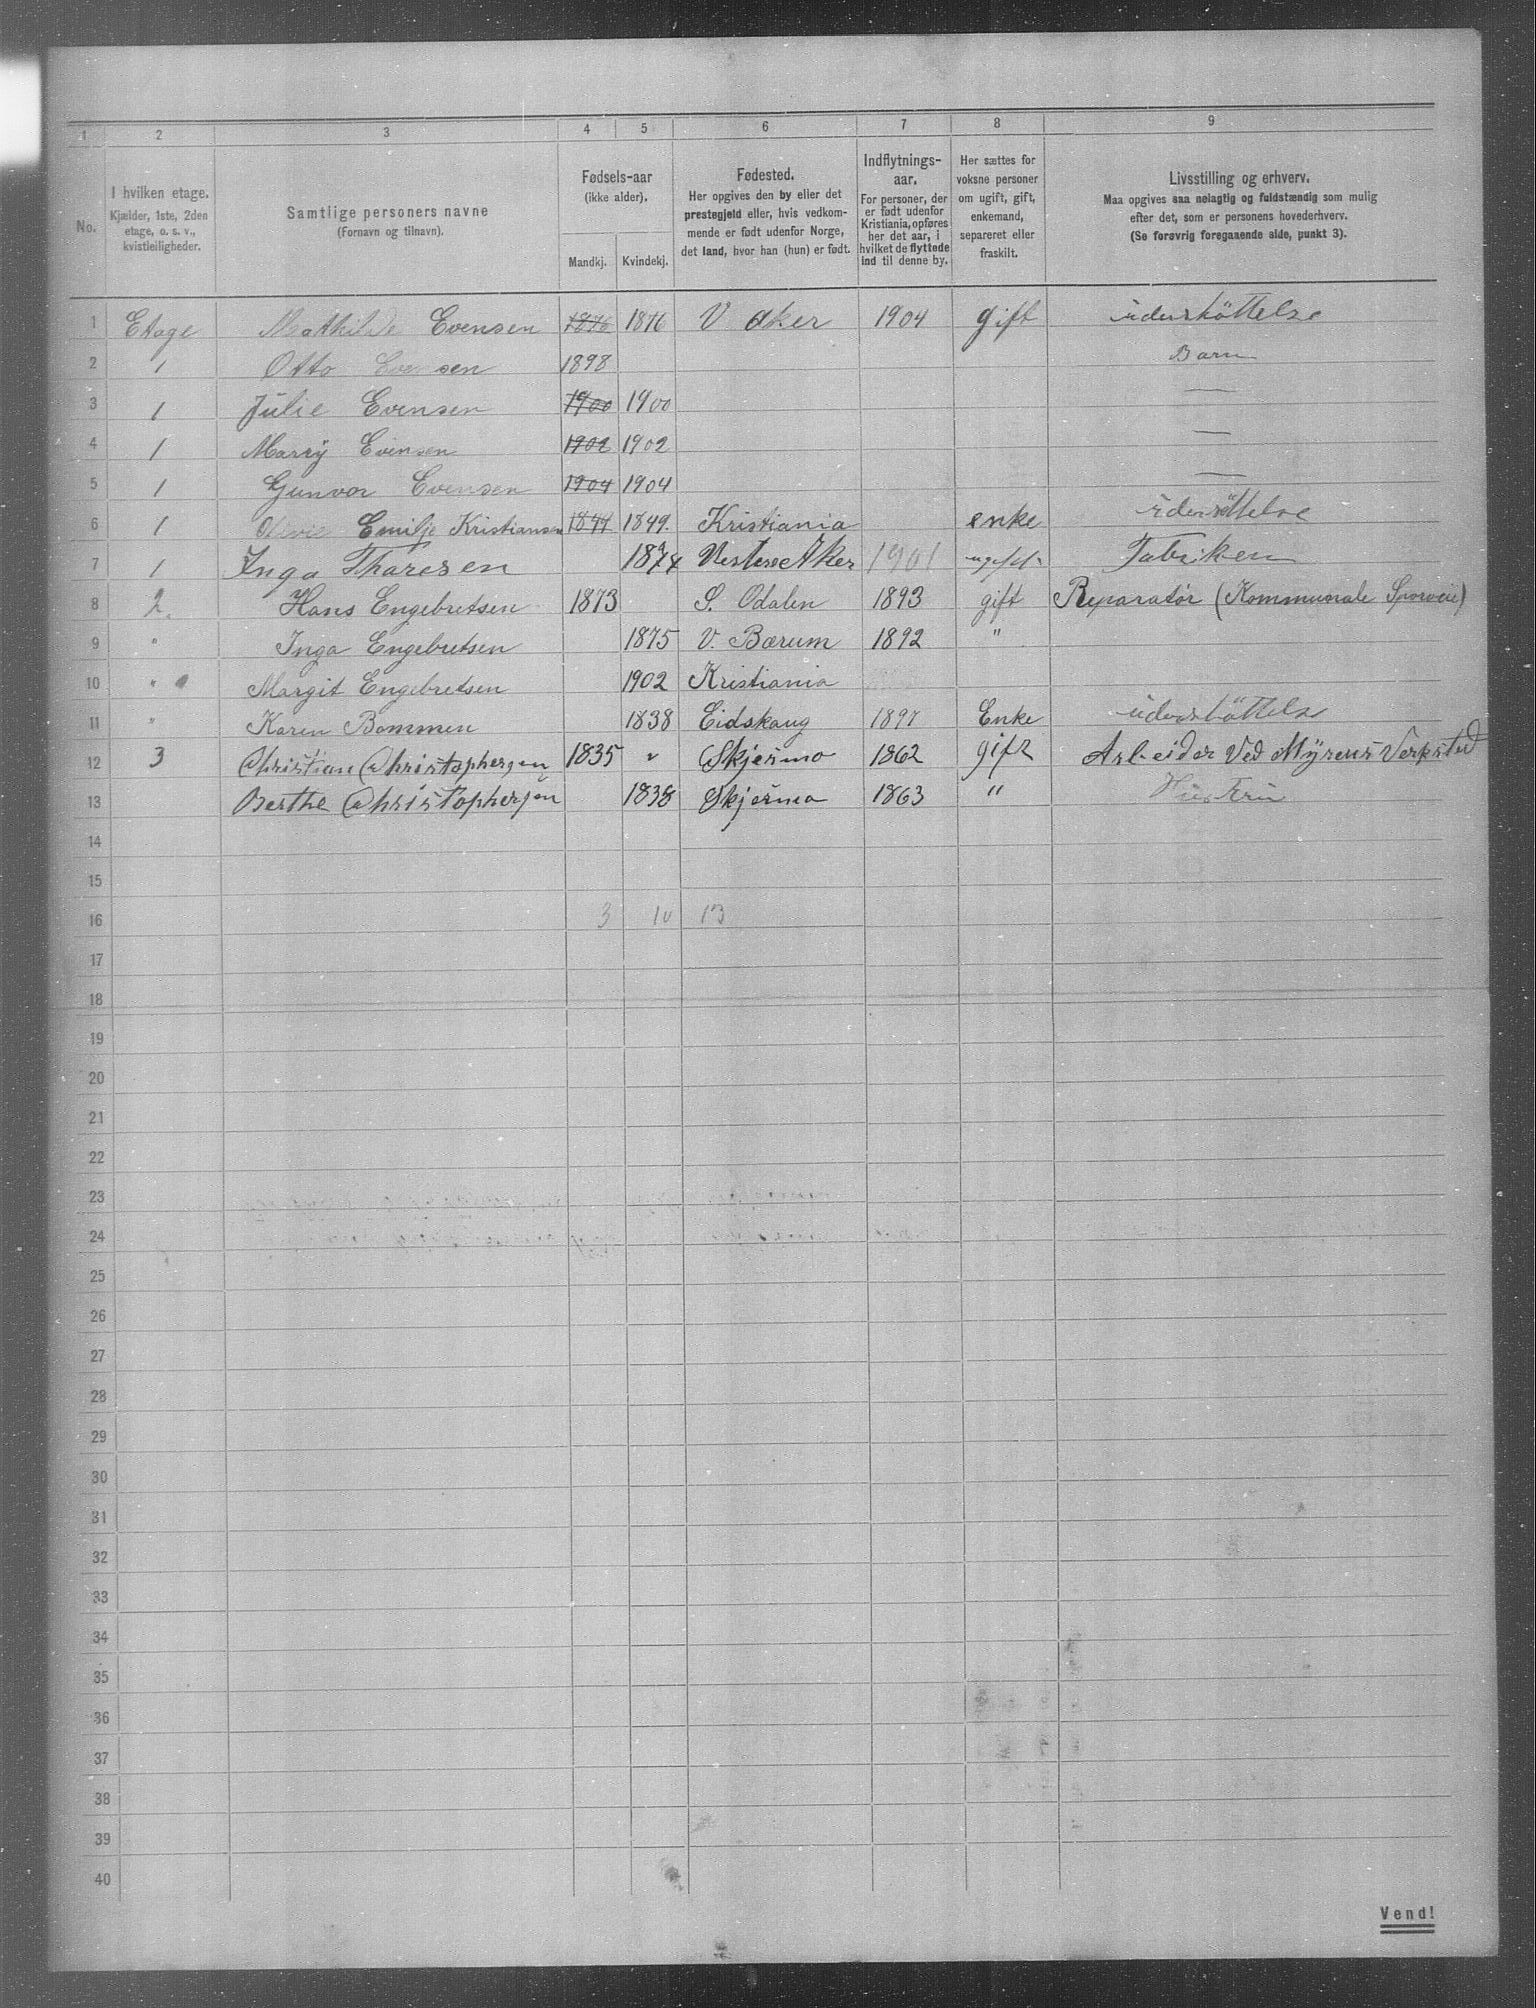 1 2 3 4 5 6 7 8 9
No.
I hvilken etage.
Kjælder, 1ste, 2den
etage, o. s. v.,
kvistleiligheder.
Samtlige personers navne
(Fornavn og tilnavn).
Fødsels-aar
(ikke alder).
Mandkj. Kvindekj.
Fødested.
Her opgives den by eller det
prestegjeld eller, hvis vedkom-
mende er født udenfor Norge,
det land, hvor han (hun) er født.
Indflytnings-
aar.
For personer, der
er født udenfor
Kristiania, opføres
her det aar, i
hvilket de flyttede
ind til denne by.
Her sættes for
voksne personer
om ugift, gift,
enkemand,
separeret eller
fraskilt.
Livsstilling og erhverv.
Maa opgives saa nøiagtig og fuldstændig som mulig
efter det, som er personens hovederhverv.
(Se forøvrig foregaaende side, punkt 3).
1 Etage Mathilde Evensen 1876 1876 V Aker 1904 gift understøttelse
2 1 Otto Evensen 1898 Barn
3 1 Julie Evensen 1900 1900 —
4 1 Marry Evensen 1902 1902 —
5 1 Gunvor Evensen 1904 1904 —
6 1 Emilje Kristiansen 1849 1849. Kristiania enke
7 1 Inga Thoresen 1874 Vestere Aker 1901 ugift Fabriken
8 2. Hans Engebretsen 1873 S. Odalen 1893 gift Reparatør (Kommunale Sporveie)
9 " Inga Engebretsen 1875 V. Bærum 1892 "
10 " Margit Engebretsen 1902 Kristiania
11 " Karen Bommen 1838 Eidskoug 1897 Enke understøttelse
12 3 Christian Christophersen 1835 " Skjermo 1862 gift Arbeider Ved Myrens Verksted
13 Berthe Christophersen 1838 Skjermo 1863 " Hustru
14
15
16 3 10 13
17
18
19
20
21
22
23
24
25
26
27
28
29
30
31
32
33
34
35
36
37
38
39
40
Vend!